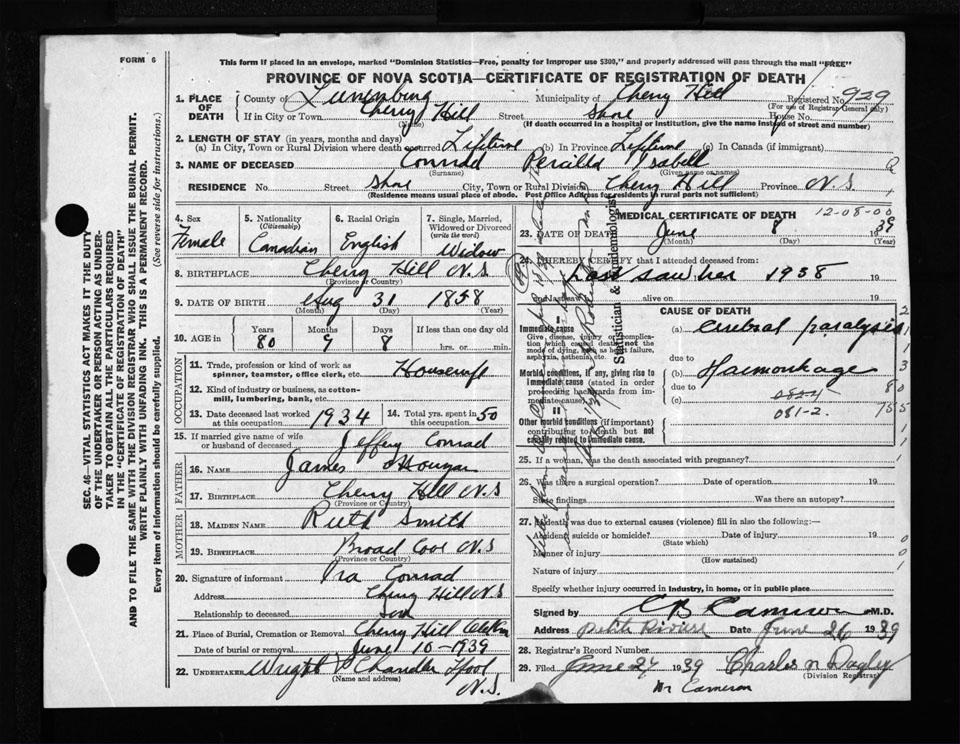 FORM 6
This form if placed in an envelope, marked "Dominion Statistics—Free, penalty for improper use $300," and properly addressed will pass through the mail "FREE"
PROVINCE OF NOVA SCOTIA—CERTIFICATE OF REGISTRATION OF DEATH
1. PLACE OF DEATH County of Lunenburg Municipality of Cherry Hill Registered No. 929
(For use of Registrar General only)
If in City or Town Cherry Hill Street Shore House No.
(Name) (If death occurred in a hospital or institution, give the name instead of street and number)
2. LENGTH OF STAY (in years, months and days)
(a) In City, Town or Rural Division where death occurred Lifetime (b) In Province Lifetime (c) In Canada (if immigrant)
3. NAME OF DECEASED Conrad Percilla Isabell
(Surname) (Given name or names)
RESIDENCE No. Street Shore City, Town or Rural Division Chery Hill Province N.S
(Residence means usual place of abode. Post Office Address for residents in rural parts not sufficient)
4. Sex Female
5. Nationality (Citizenship) Canadian
6. Racial Origin English
7. Single, Married, Widowed or Divorced (write the word) Widow
8. BIRTHPLACE Cherry Hill N.S
(Province or Country)
9. DATE OF BIRTH Aug 31 1858
(Month) (Day) (Year)
10. AGE in Years 80 Months 9 Days 8 If less than one day old hrs. or min.
OCCUPATION
11. Trade, profession or kind of work as spinner, teamster, office clerk, etc. Housewife
12. Kind of industry or business, as cotton-mill, lumbering, bank, etc.
13. Date deceased last worked at this occupation 1934 14. Total yrs. spent in this occupation 50
15. If married give name of wife or husband of deceased Jeffery Conrad
FATHER
16. NAME James
17. BIRTHPLACE Cherry Hill N.S
(Province or Country)
MOTHER
18. MAIDEN NAME Ruth Smith
19. BIRTHPLACE Broad Cove N.S
(Province or Country)
20. Signature of informant Ira Conrad
Address Cherry Hill N.S
Relationship to deceased Son
21. Place of Burial, Cremation or Removal Cherry Hill
Date of burial or removal June 10-1939
22. UNDERTAKER Wright Chandler
(Name and address) N.S.
MEDICAL CERTIFICATE OF DEATH
12-08-00
23. DATE OF DEATH June 8 1939
(Month) (Day) (Year)
24. I HEREBY CERTIFY that I attended deceased from:
Last saw her 1938 19
alive on 19
CAUSE OF DEATH
Immediate cause
Give, disease, injury or complication which caused death, not the mode of dying, such as heart failure, asphyxia, asthenia, etc.
(a) Cerebral paralysis
due to
Morbid conditions, if any, giving rise to immediate cause (stated in order proceeding backwards from immediate cause)
(b) Haemorrhage
due to
(c) 082-1
081-2.
Other morbid conditions (if important) contributing to death but not causally related to immediate cause
25. If a woman, was the death associated with pregnancy?
26. Was there a surgical operation? Date of operation 19
State findings Was there an autopsy?
27. If death was due to external causes (violence) fill in also the following:—
Accident, suicide or homicide? Date of injury 19
(State which)
Manner of injury
(How sustained)
Nature of injury
Specify whether injury occurred in industry, in home, or in public place
Signed by CB Cameron M.D.
Address Petite Riviere Date June 26 1939
28. Registrar's Record Number
29. Filed June 27 1939 Charles N Dagley
(Division Registrar)
Dr Cameron
Statistician & Epidemiologist
SEC. 46—VITAL STATISTICS ACT MAKES IT THE DUTY
OF THE UNDERTAKER OR PERSON ACTING AS UNDER-
TAKER TO OBTAIN ALL THE PARTICULARS REQUIRED
IN THE "CERTIFICATE OF REGISTRATION OF DEATH"
AND TO FILE THE SAME WITH THE DIVISION REGISTRAR WHO SHALL ISSUE THE BURIAL PERMIT.
WRITE PLAINLY WITH UNFADING INK. THIS IS A PERMANENT RECORD.
Every item of information should be carefully supplied. (See reverse side for instructions.)